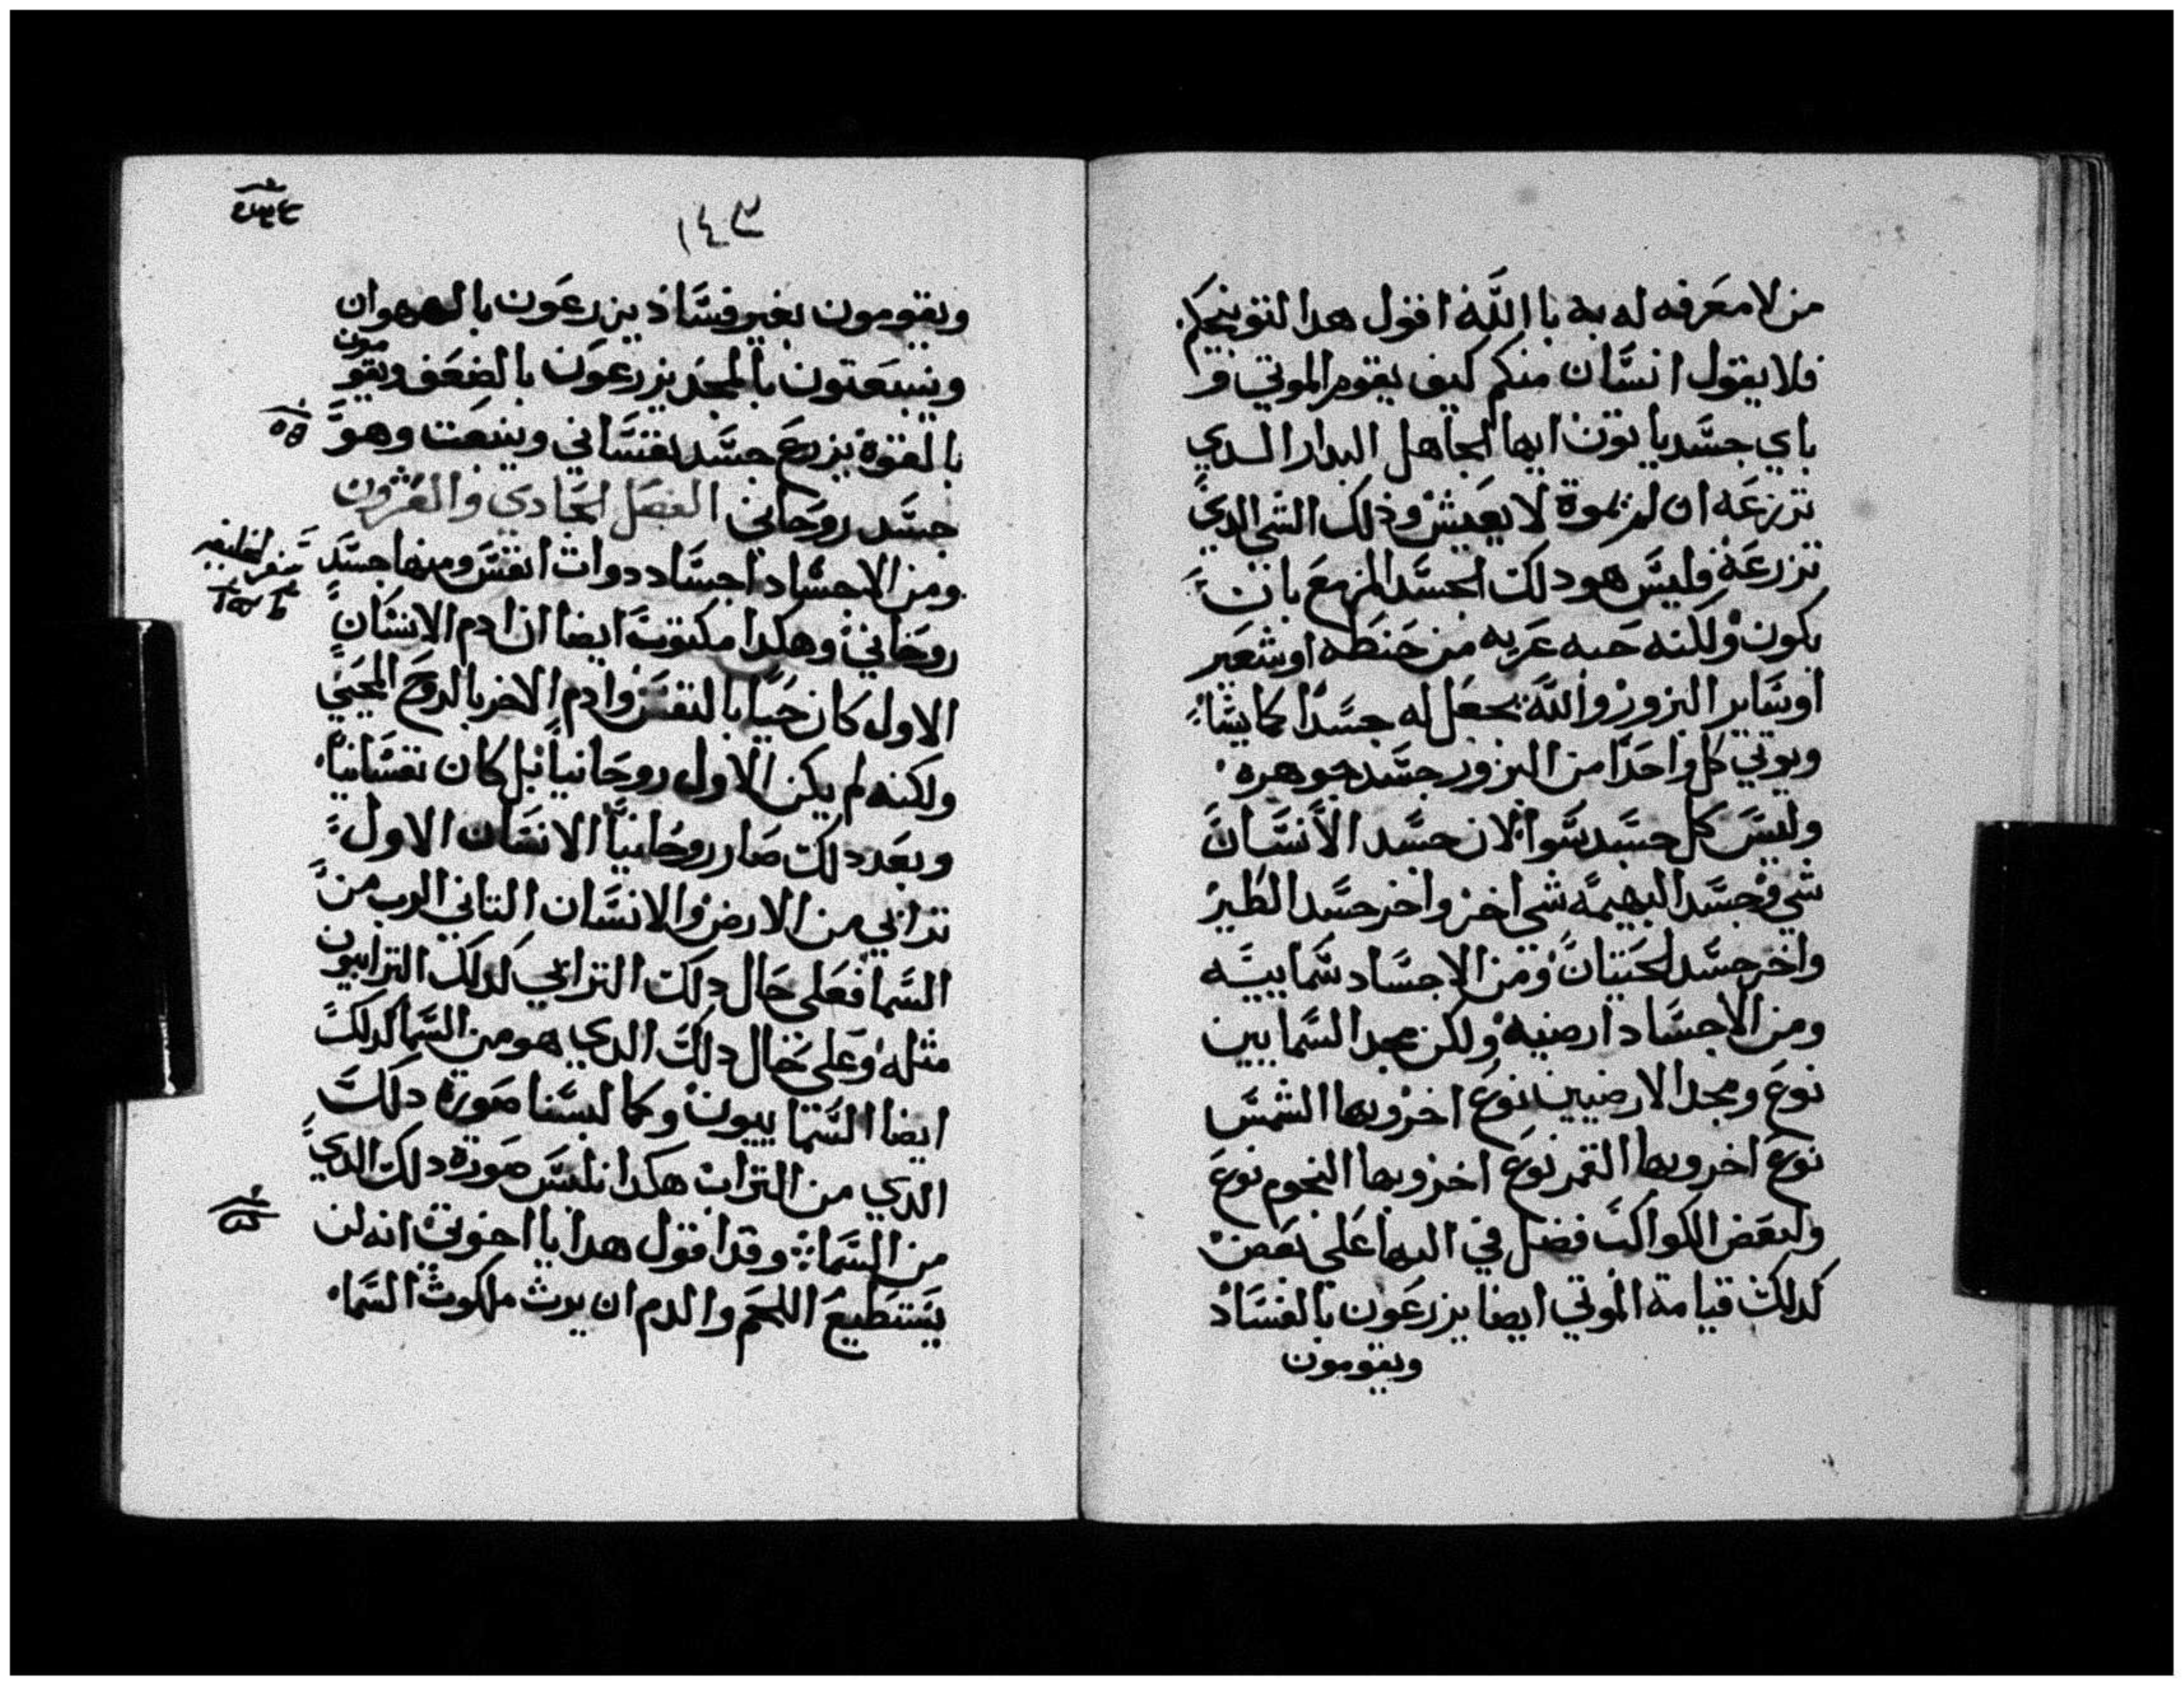 من لا معرفه له به بالله اقول هدا لتوبيخكم
فلا يقول انسان منكم كيف يقوم الموتي و
باي جسد ياتون ايها الجاهل البدار الدي
تزرعه ان لم يموة لا يعيش وذلك الشي الدي
تزرعه فليس هو دلك الجسد المزمع بان
يكون ولكنه حبه عريه من حنطه او شعير
او ساير البزور والله يجعل له جسدا كما يشا
ويوتي كل واحدا من البزور جسد جوهره
وليس كل جسد سوا لان جسد الانسان
شي وجسد البهيمه شي اخر واخر جسد الطير
واخر جسد الحيتان ومن الاجساد سماييه
ومن الاجساد ارضيه ولكن مجد السمايين
نوع ومجد الارضيين نوع اخر وبها الشمس
نوع اخر وبها القمر نوع اخر وبها النجوم نوع
ولبعض الكواكب فضل في البها على بعض
كدلك قيامة الموتي ايضا يزرعون بالفساد
ويقومون
١٤٣
ويقومون بغير فساد يزرعون بالهوان
وينبعتون بالمجد يزرعون بالضعف ويقومون
بالقوة يزرع جسد نفساني وينبعت وهو
جسد روحاني الفصل الحادي والعشرون
ومن الاجساد اجساد دوات انفس ومنها جسد
روحاني وهكدا مكتوب ايضا ان ادم الانسان
الاول كان حيا بالنفس وادم الاخر بالروح المحيي
ولكنه لم يكن الاول روحانيا بل كان نفسانيا
وبعد دلك صار روحانيا الانسان الاول
ترابي من الارض والانسان التاني الرب من
السما فعلى حال دلك الترابي كدلك الترابيون
مثله وعلى حال دلك الدي هو من السما كدلك
ايضا السماييون وكما لبسنا صورة دلك
الدي من التراب هكدا نلبس صورة دلك الدي
من السما وقد اقول هدا يا اخوتي انه لن
يستطيع اللحم والدم ان يرث ملكوت السما